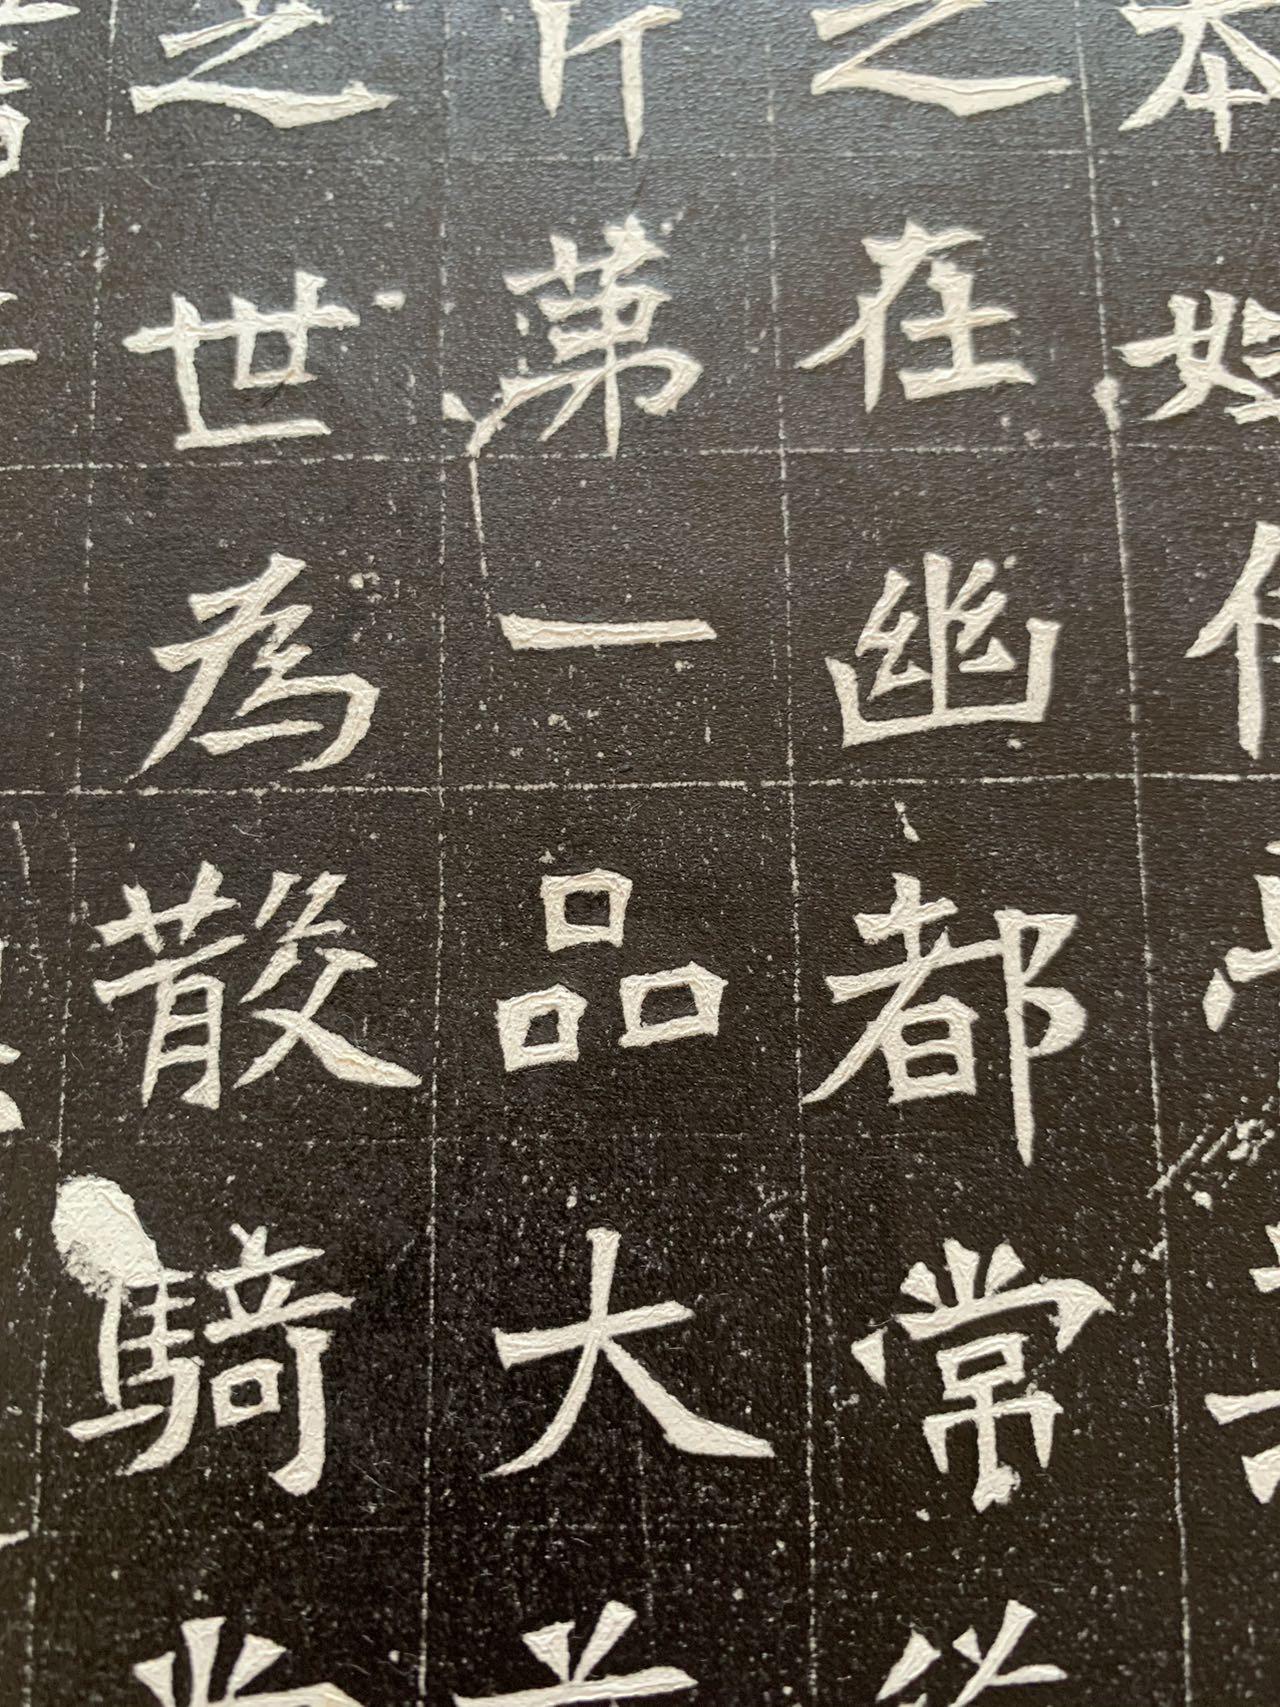 本
之在幽都常
斤第一品大
之世為散騎常